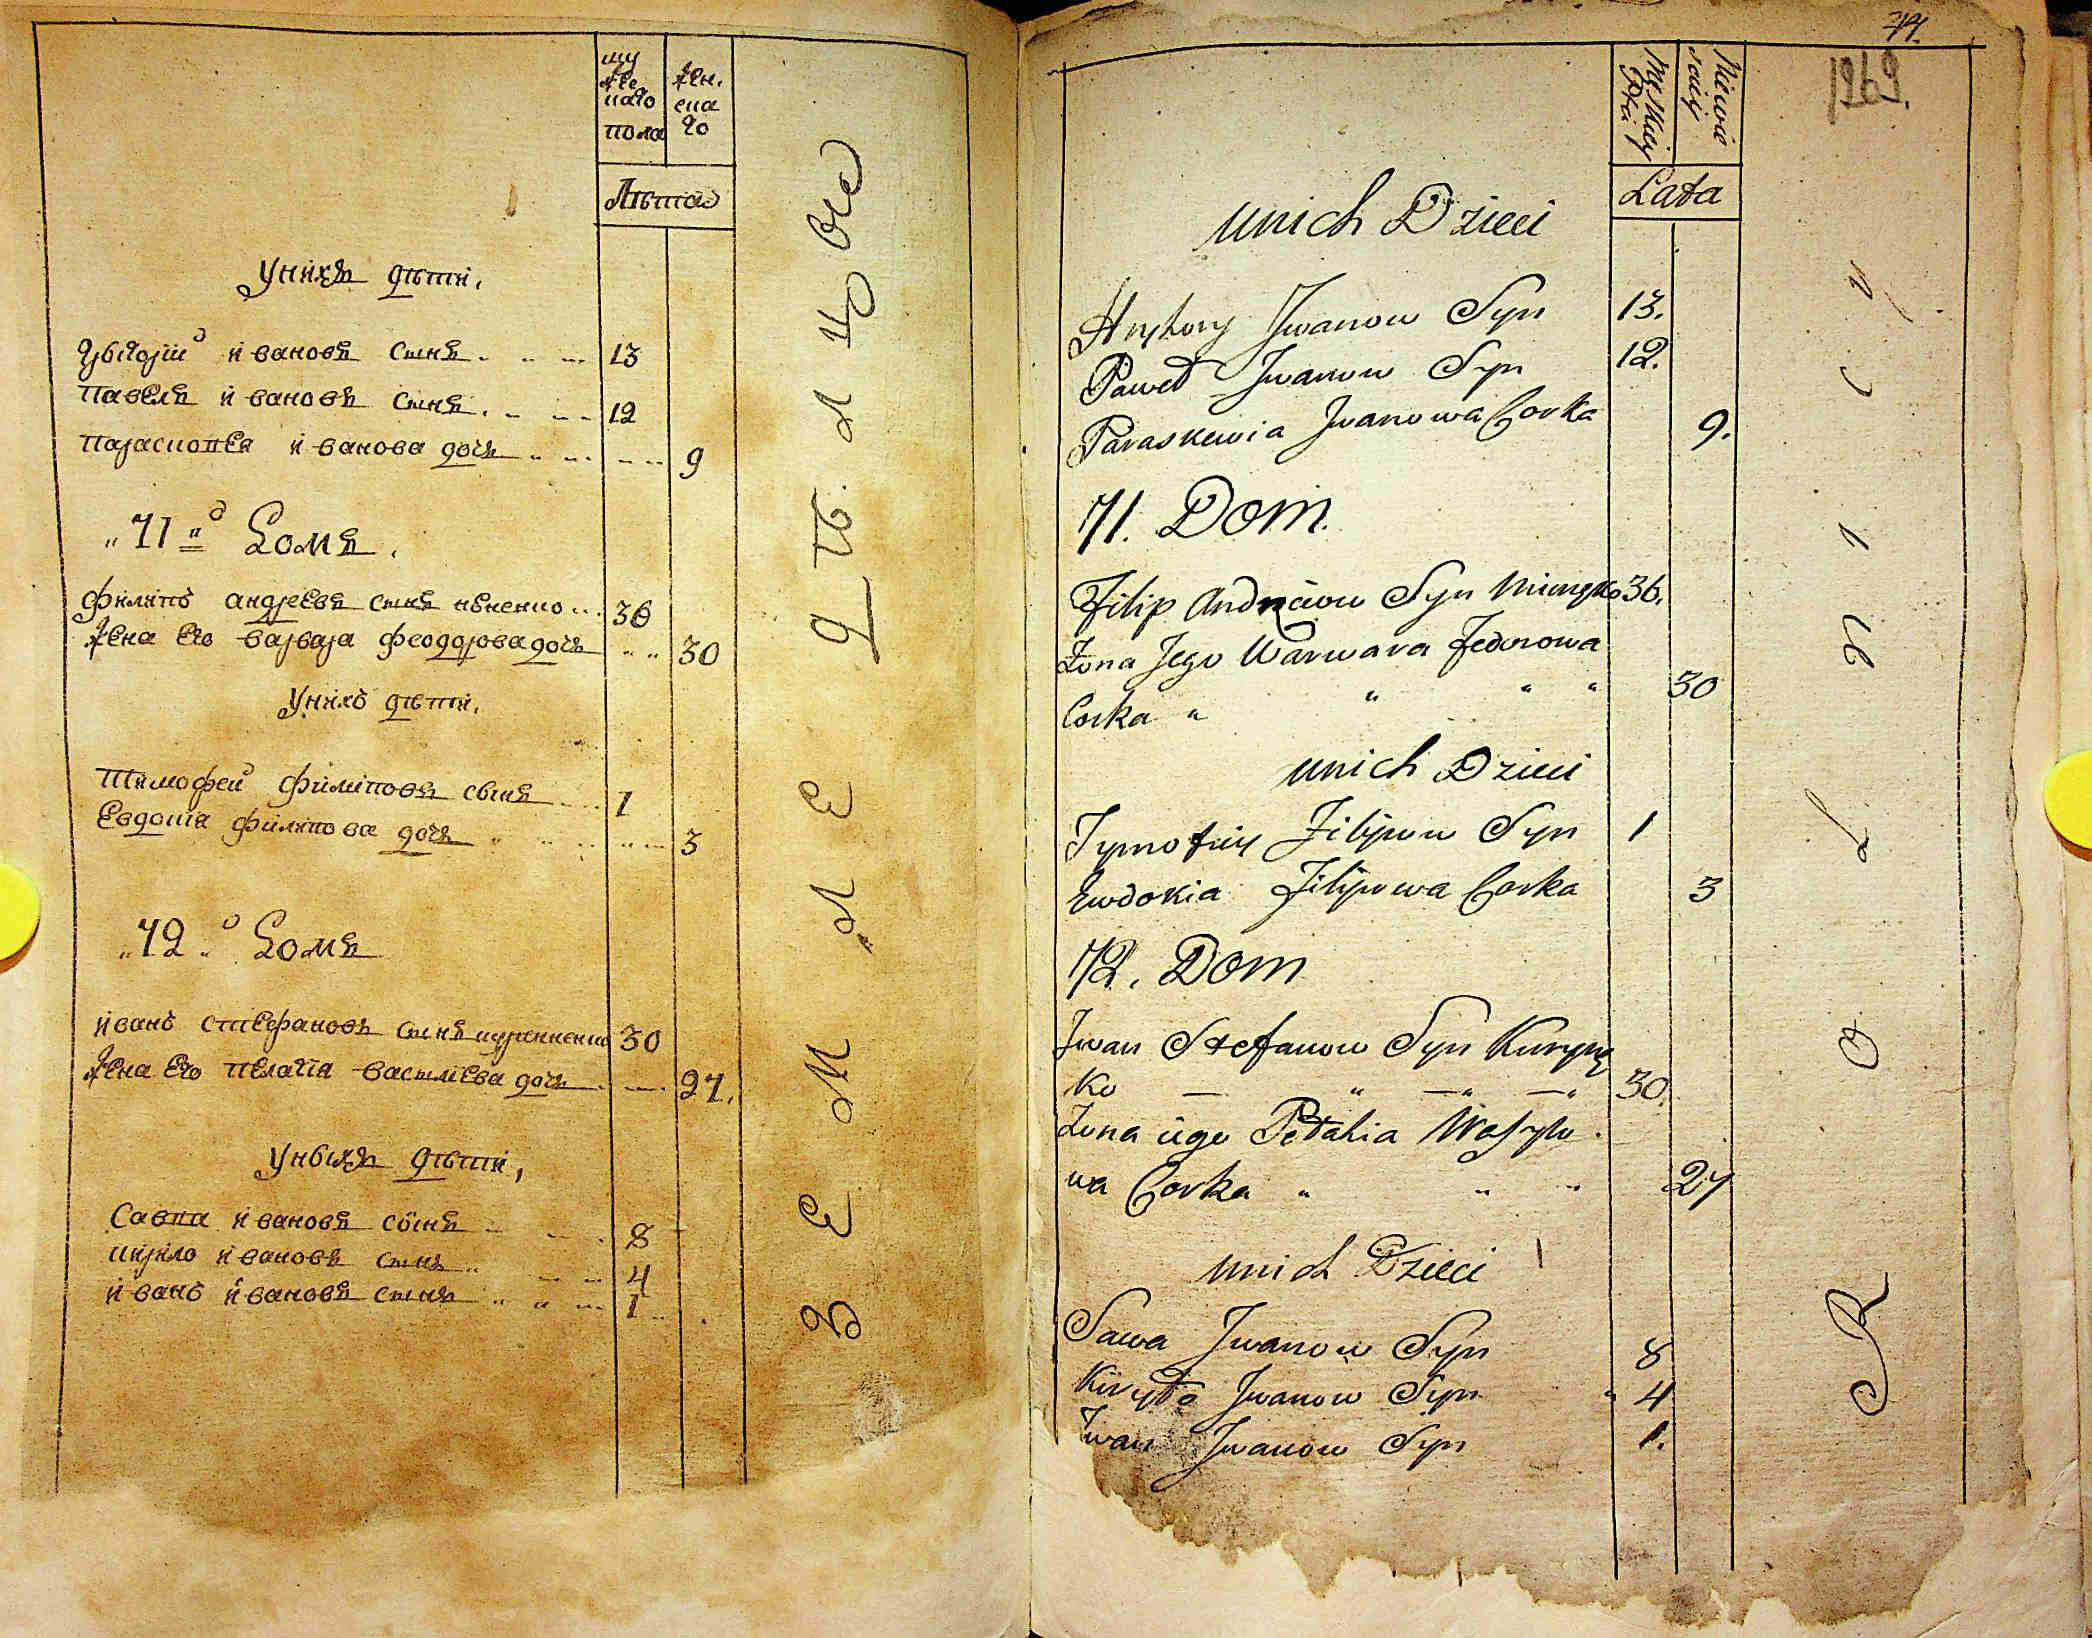 му
же
скаго
пола
жен.
ска
го
Лѣта
Унихъ дѣти.
Григорій ивановъ сынъ 13
Павелъ ивановъ сынъ 12
Параскопѣя иванова дочь 9
"71" й Домъ.
Филипъ андреевъ сынъ 36
жена Его варвара феодорова дочь 30
Унихъ дѣти.
Тимофей филиповъ сынъ 1
Евдокія филипова дочь 3
"72" й Домъ
иванъ стефановъ сынъ 30
жена Его пелагія василіева дочь 27.
Унихъ дѣти,
Савка ивановъ сынъ 8
кирило ивановъ сынъ 4
иванъ ивановъ сынъ 1
ЗЕМЛЕДѢЛЦОВ
71.
1969.
Męskiey
Płci
Niewie
sciey
Lata
unich Dzieci
Hryhory Jwanow Syn 13.
Paweł Jwanow Syn 12.
Paraskewia Jwanowa Corka 9.
71. Dom.
Filip Andrejow Syn 36.
Żona Jego Warwara Fedorowa
Corka " " " " 30
unich Dzieci
Tymofiey Filipow Syn 1
Ewdokia Filipowa Corka 3
72. Dom
Jwan Stefanow Syn Kuryne
ko — " — " — " 30.
Żona iego Pełahia Wasylo
wa Corka " " " 27
unich Dzieci
Sawa Jwanow Syn 8
Kiryło Jwanow Syn " 4
Jwan Jwanow Syn 1.
Rolnicy